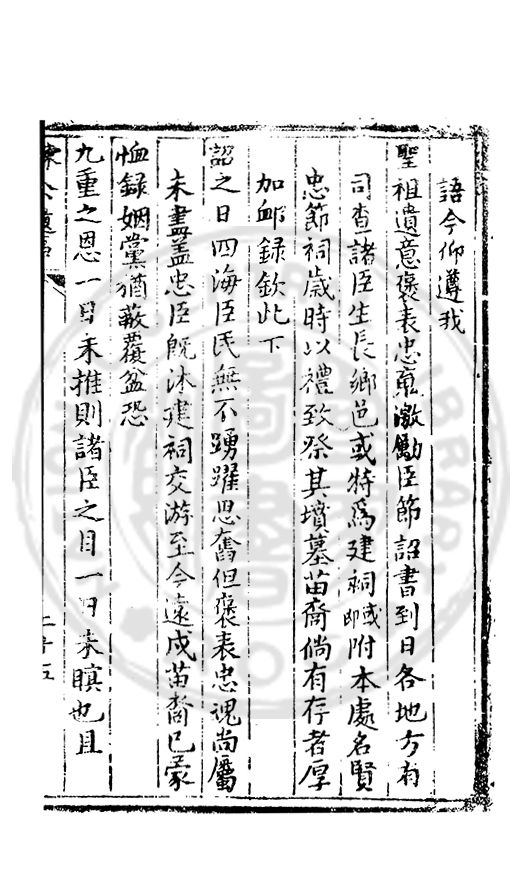 語今仰遵我
聖祖遺意褒表忠魂激勵臣節詔書到日各地方有
司查諸臣生長鄉邑或特爲建祠或即附本處名賢
忠節祠歲時以禮致祭其墳墓苗裔倘有存者厚
加卹錄欽此下
詔之日四海臣民無不踴躍思奮但褒表忠魂尚屬
未盡盖忠臣既沐建祠交游至今遠戍苗裔已蒙
恤録姻黨猶蔽覆盆恐
九重之恩一日未推則諸臣之目一日未瞑也且
二十五